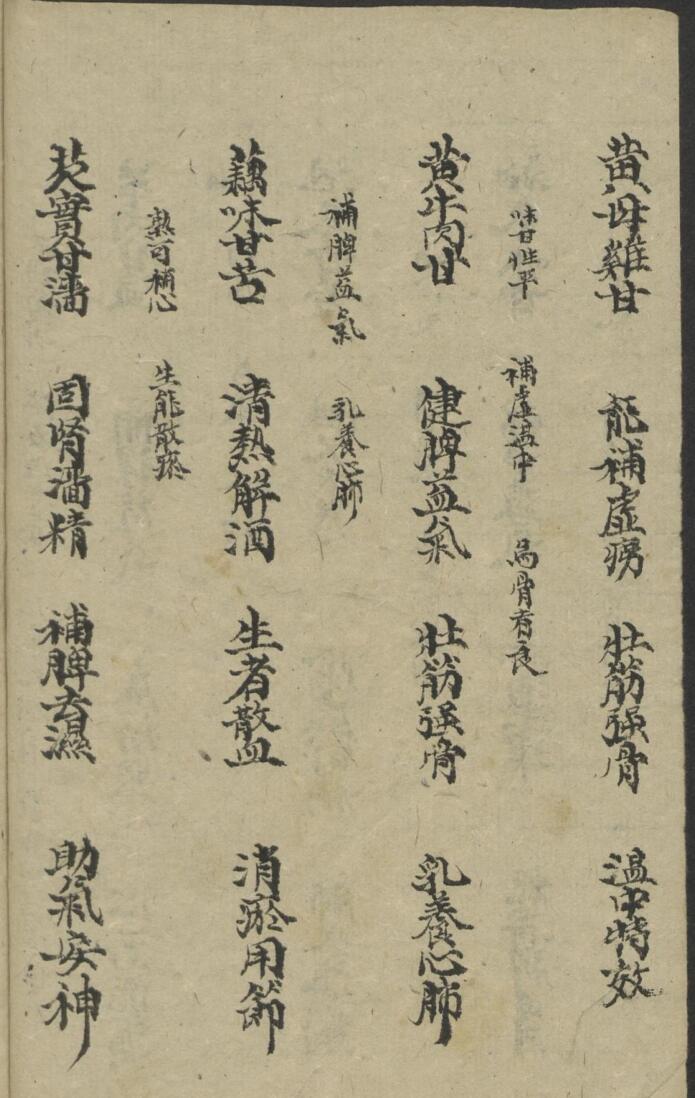 黄母雞甘 能補虛癆 壯筋强骨 温中特效
味甘性平 補虛温中 烏骨有良
黄牛肉甘 健脾益氣 壯筋强骨 乳養心肺
補脾益氣 乳養心肺
藕味甘苦 清熱解酒 生者散血 消瘀用節
熟可補心 生能散瘀
芡實甘濇 固腎濇精 補脾去濕 助氣安神